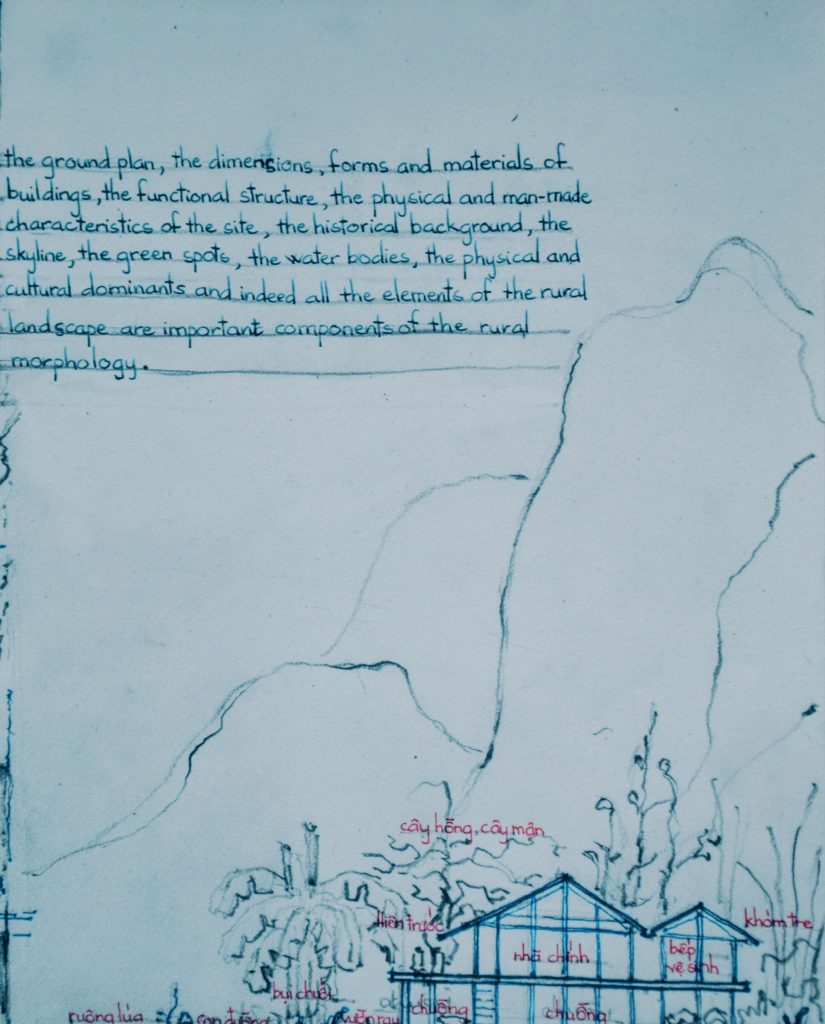 the ground plan, the dimensions, forms and materials of
buildings, the functional structure, the physical and man-made
characteristics of the site, the historical background, the
skyline, the green spots, the water bodies, the physical and
cultural dominants and indeed all the elements of the rural
landscape are important components of the rural
morphology.
cây hồng, cây mận
Hiên trước
khóm tre
nhà chính
bếp
vệ sinh
bụi chuối
ruộng lúa
con đường
vườn rau
chuồng
chuồng